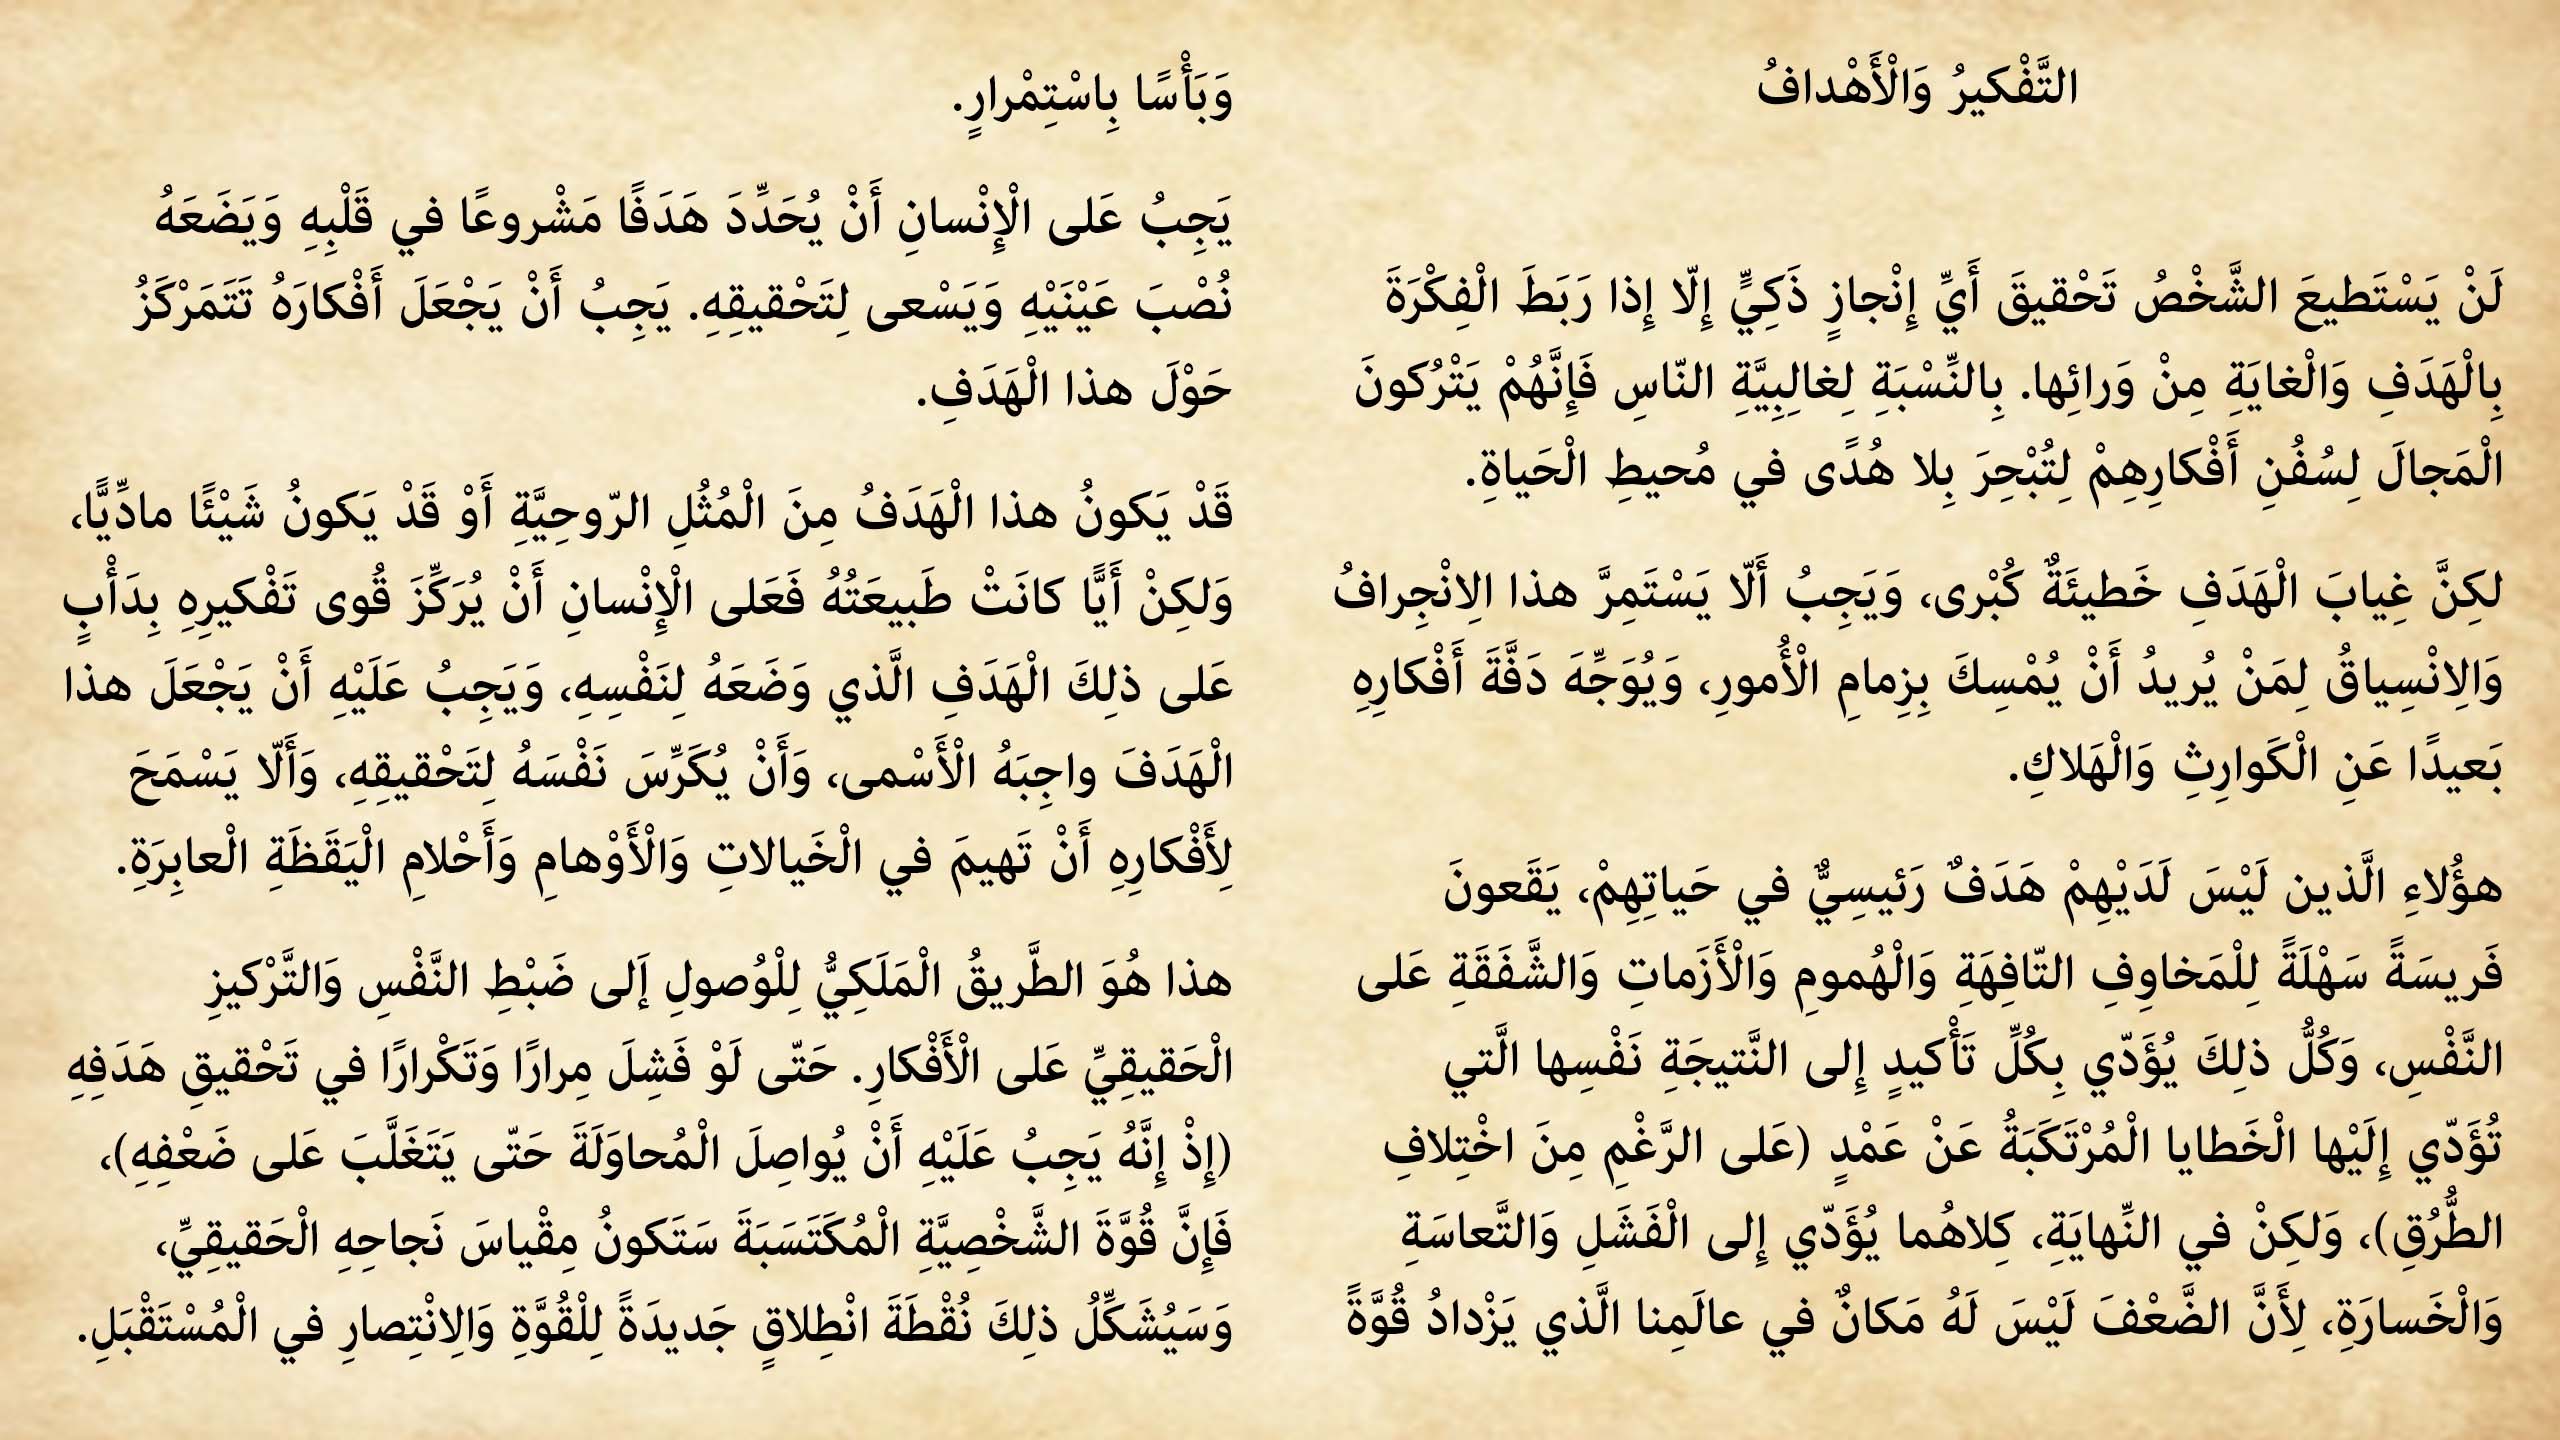 التَّفْكيرُ وَالْأَهْدافُ
لَنْ يَسْتَطيعَ الشَّخْصُ تَحْقيقَ أَيِّ إِنْجازٍ ذَكِيٍّ إِلّا إِذا رَبَطَ الْفِكْرَةَ
بِالْهَدَفِ وَالْغايَةِ مِنْ وَرائِها. بِالنِّسْبَةِ لِغالِبِيَّةِ النّاسِ فَإِنَّهُمْ يَتْرُكونَ
الْمَجالَ لِسُفُنِ أَفْكارِهِمْ لِتُبْحِرَ بِلا هُدًى في مُحيطِ الْحَياةِ.
لكِنَّ غِيابَ الْهَدَفِ خَطيئَةٌ كُبْرى، وَيَجِبُ أَلّا يَسْتَمِرَّ هذا الِانْجِرافُ
وَالِانْسِياقُ لِمَنْ يُريدُ أَنْ يُمْسِكَ بِزِمامِ الْأُمورِ، وَيُوَجِّهَ دَفَّةَ أَفْكارِهِ
بَعيدًا عَنِ الْكَوارِثِ وَالْهَلاكِ.
هؤُلاءِ الَّذين لَيْسَ لَدَيْهِمْ هَدَفٌ رَئيسِيٌّ في حَياتِهِمْ، يَقَعونَ
فَريسَةً سَهْلَةً لِلْمَخاوِفِ التّافِهَةِ وَالْهُمومِ وَالْأَزَماتِ وَالشَّفَقَةِ عَلى
النَّفْسِ، وَكُلُّ ذلِكَ يُؤَدّي بِكُلِّ تَأْكيدٍ إِلى النَّتيجَةِ نَفْسِها الَّتي
تُؤَدّي إِلَيْها الْخَطايا الْمُرْتَكَبَةُ عَنْ عَمْدٍ (عَلى الرَّغْمِ مِنَ اخْتِلافِ
الطُّرُقِ)، وَلكِنْ في النِّهايَةِ، كِلاهُما يُؤَدّي إِلى الْفَشَلِ وَالتَّعاسَةِ
وَالْخَسارَةِ، لِأَنَّ الضَّعْفَ لَيْسَ لَهُ مَكانٌ في عالَمِنا الَّذي يَزْدادُ قُوَّةً
وَبَأْسًا بِاسْتِمْرارٍ.
يَجِبُ عَلى الْإِنْسانِ أَنْ يُحَدِّدَ هَدَفًا مَشْروعًا في قَلْبِهِ وَيَضَعَهُ
نُصْبَ عَيْنَيْهِ وَيَسْعى لِتَحْقيقِهِ. يَجِبُ أَنْ يَجْعَلَ أَفْكارَهُ تَتَمَرْكَزُ
حَوْلَ هذا الْهَدَفِ.
قَدْ يَكونُ هذا الْهَدَفُ مِنَ الْمُثُلِ الرّوحِيَّةِ أَوْ قَدْ يَكونُ شَيْئًا مادِّيًّا،
وَلكِنْ أَيًّا كانَتْ طَبيعَتُهُ فَعَلى الْإِنْسانِ أَنْ يُرَكِّزَ قُوى تَفْكيرِهِ بِدَأْبٍ
عَلى ذلِكَ الْهَدَفِ الَّذي وَضَعَهُ لِنَفْسِهِ، وَيَجِبُ عَلَيْهِ أَنْ يَجْعَلَ هذا
الْهَدَفَ واجِبَهُ الْأَسْمى، وَأَنْ يُكَرِّسَ نَفْسَهُ لِتَحْقيقِهِ، وَأَلّا يَسْمَحَ
لِأَفْكارِهِ أَنْ تَهيمَ في الْخَيالاتِ وَالْأَوْهامِ وَأَحْلامِ الْيَقَظَةِ الْعابِرَةِ.
هذا هُوَ الطَّريقُ الْمَلَكِيُّ لِلْوُصولِ إَلى ضَبْطِ النَّفْسِ وَالتَّرْكيزِ
الْحَقيقِيِّ عَلى الْأَفْكارِ. حَتّى لَوْ فَشِلَ مِرارًا وَتَكْرارًا في تَحْقيقِ هَدَفِهِ
(إِذْ إِنَّهُ يَجِبُ عَلَيْهِ أَنْ يُواصِلَ الْمُحاوَلَةَ حَتّى يَتَغَلَّبَ عَلى ضَعْفِهِ)،
فَإِنَّ قُوَّةَ الشَّخْصِيَّةِ الْمُكَتَسَبَةَ سَتَكونُ مِقْياسَ نَجاحِهِ الْحَقيقِيِّ،
وَسَيُشَكِّلُ ذلِكَ نُقْطَةَ انْطِلاقٍ جَديدَةً لِلْقُوَّةِ وَالِانْتِصارِ في الْمُسْتَقْبَلِ.